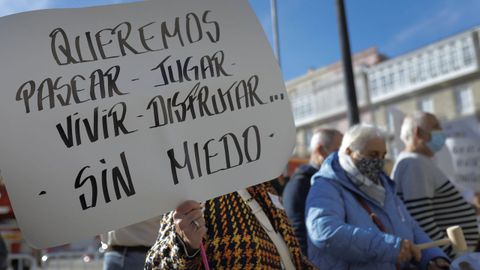 QUEREMOS
PASEAR - JUGAR -
VIVIR - DISFRUTAR...
- SIN MIEDO -